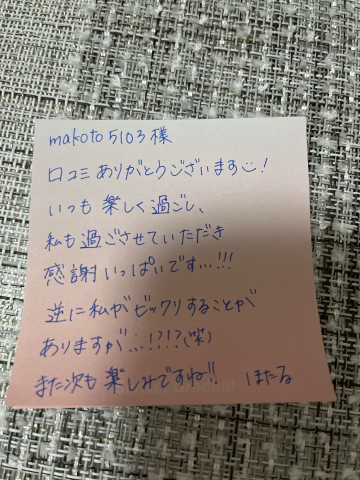 makoto5103様
口コミありがとうございます☺!
いつも楽しく過ごし、
私も過ごさせていただき
感謝いっぱいです…!!!
逆に私がビックリすることが
ありますが…!?!?(笑)
また次も楽しみですね!! ほたる